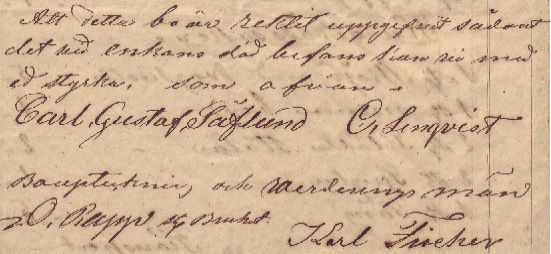 Att detta bo är rektit uppgifvit sådant
det vid enkans död befans kan vi med
ed styrka, som ofvan.
Carl Gustaf Säflund C, Linqvist
Bouptecknings och värderings män
O. Rapp
Karl Fischer